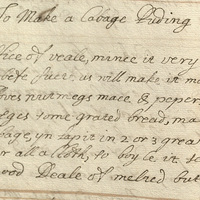 To Make a Cabage Puding
fice of veale, mince it very
beefe suet, as will make it mo
oves nutmegs mace & peper
egges some grated bread, ma
bage, yn lap it in 2 or 3 grea
or all a cloth, so boyle it se
ood Deale of melted but